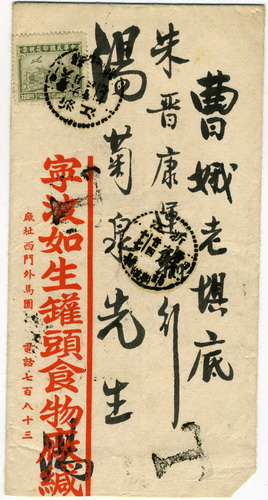 曹娥老壩底
朱晋康運輸行
湯菊泉先生
寧波如生罐頭食物廠緘
廠址西門外馬園
電話七百八十三